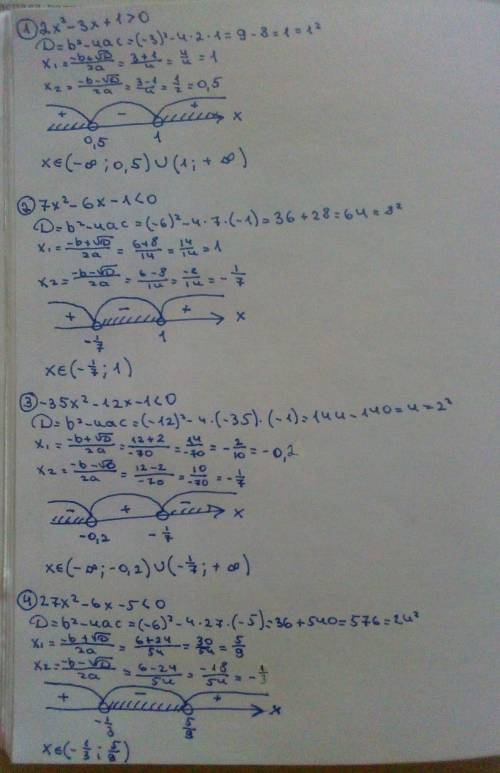 ① 2x²-3x+1>0
D=b²-4ac=(-3)²-4·2·1=9-8=1=1²
x₁=(-b+√D)/2a=(3+1)/4=4/4=1
x₂=(-b-√D)/2a=(3-1)/4=1/2=0,5
+ - +
0,5 1 x
x∈(-∞;0,5)∪(1;+∞)
② 7x²-6x-1<0
D=b²-4ac=(-6)²-4·7·(-1)=36+28=64=8²
x₁=(-b+√D)/2a=(6+8)/14=14/14=1
x₂=(-b-√D)/2a=(6-8)/14=-2/14=-1/7
+ - +
-1/7 1 x
x∈(-1/7;1)
③ -35x²-12x-1<0
D=b²-4ac=(-12)²-4·(-35)·(-1)=144-140=4=2²
x₁=(-b+√D)/2a=(12+2)/-70=14/-70=-2/10=-0,2
x₂=(-b-√D)/2a=(12-2)/-70=10/-70=-1/7
- + -
-0,2 -1/7 x
x∈(-∞;-0,2)∪(-1/7;+∞)
④ 27x²-6x-5<0
D=b²-4ac=(-6)²-4·27·(-5)=36+540=576=24²
x₁=(-b+√D)/2a=(6+24)/54=30/54=5/9
x₂=(-b-√D)/2a=(6-24)/54=-18/54=-1/3
+ - +
-1/3 5/9 x
x∈(-1/3;5/9)